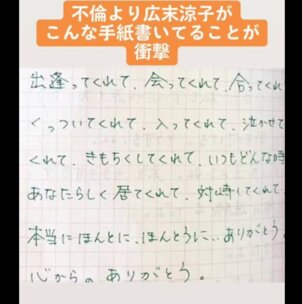 不倫より広末涼子が
こんな手紙書いてることが
衝撃
出逢ってくれて、会ってくれて、合ってくれ
くっついてくれて、入ってくれて、泣かせて
くれて、きもちくしてくれて、いつもどんな時
あなたらしく居てくれて、対峙してくれて
本当にほんとに、ほんとうに…ありがとう。
心から。ありがとう。